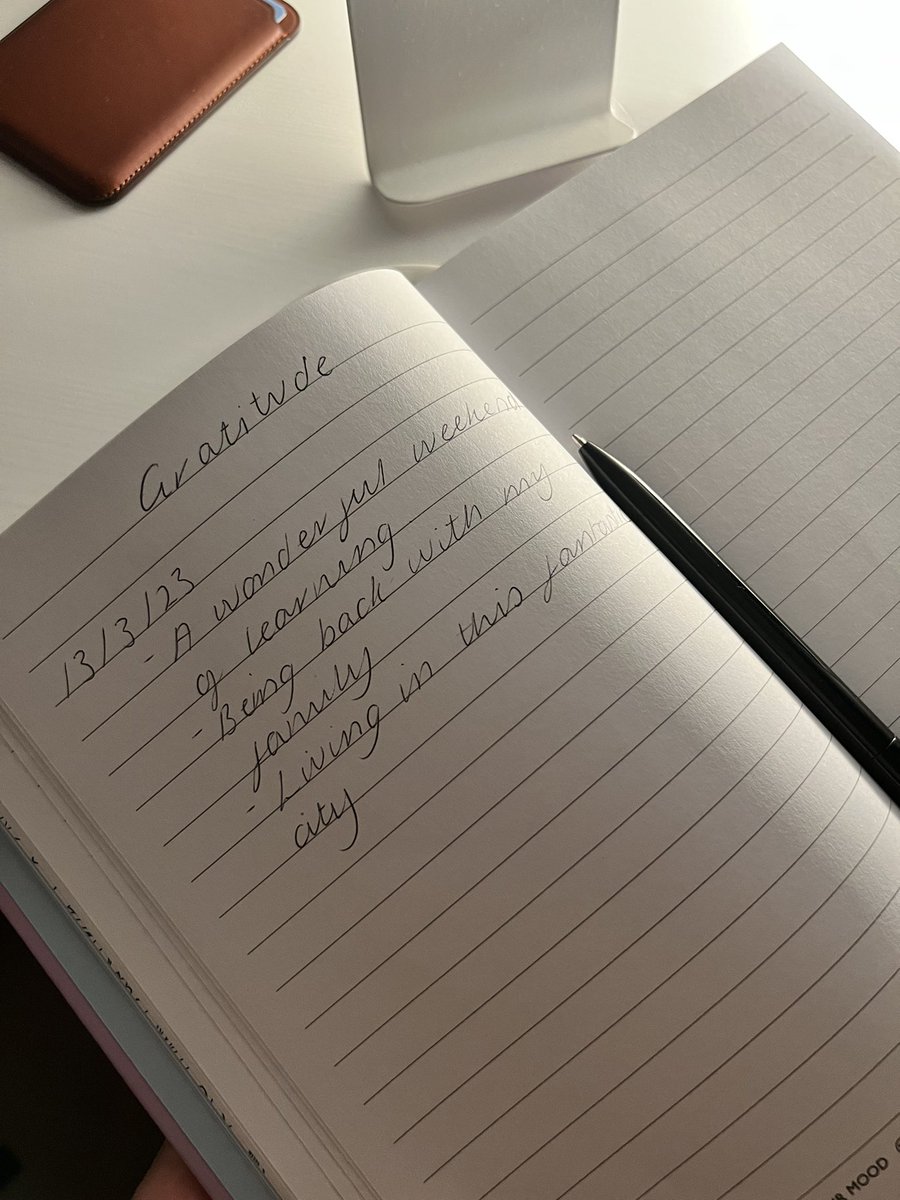 Gratitude
13/3/23
- A wonderful weekend
of learning
- Being back with my
family
- Living in this fantastic
city
MOOD